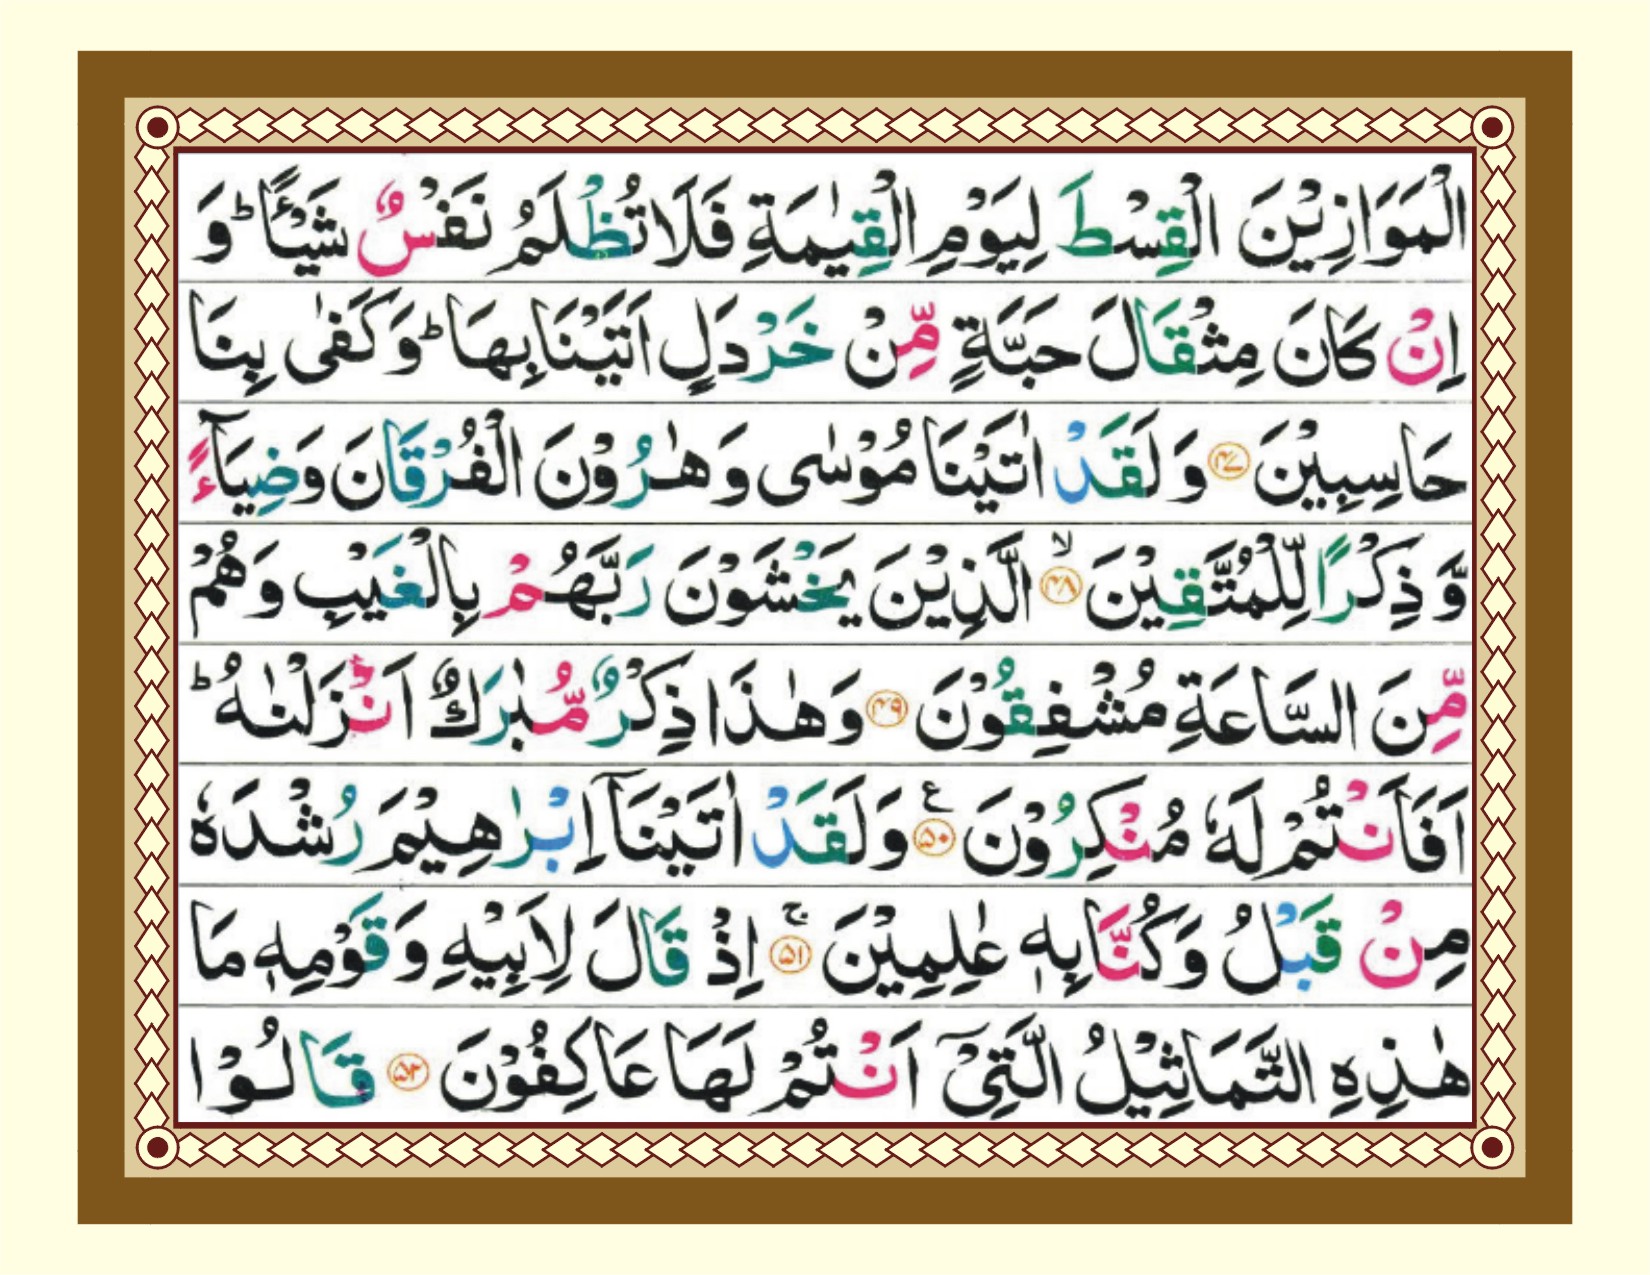 الْمَوَازِيْنَ الْقِسْطَ لِيَوْمِ الْقِيٰمَةِ فَلَا تُظْلَمُ نَفْسٌ شَيْـًٔا ؕ وَ
اِنْ كَانَ مِثْقَالَ حَبَّةٍ مِّنْ خَرْدَلٍ اَتَيْنَا بِهَا ؕ وَكَفٰى بِنَا
حَاسِبِيْنَ ﴿۴۷﴾ وَ لَقَدْ اٰتَيْنَا مُوْسٰى وَ هٰرُوْنَ الْفُرْقَانَ وَضِيَآءً
وَّ ذِكْرًا لِّلْمُتَّقِيْنَ ﴿۴۸﴾ۙ الَّذِيْنَ يَخْشَوْنَ رَبَّهُمْ بِالْغَيْبِ وَهُمْ
مِّنَ السَّاعَةِ مُشْفِقُوْنَ ﴿۴۹﴾ وَهٰذَا ذِكْرٌ مُّبٰرَكٌ اَنْزَلْنٰهُ ؕ
اَفَاَنْتُمْ لَهٗ مُنْكِرُوْنَ ﴿۵۰﴾ ع وَلَقَدْ اٰتَيْنَاۤ اِبْرٰهِيْمَ رُشْدَهٗ
مِنْ قَبْلُ وَكُنَّا بِهٖ عٰلِمِيْنَ ﴿۵۱﴾ۚ اِذْ قَالَ لِاَبِيْهِ وَقَوْمِهٖ مَا
هٰذِهِ التَّمَاثِيْلُ الَّتِيْۤ اَنْتُمْ لَهَا عَاكِفُوْنَ ﴿۵۲﴾ قَالُوْا